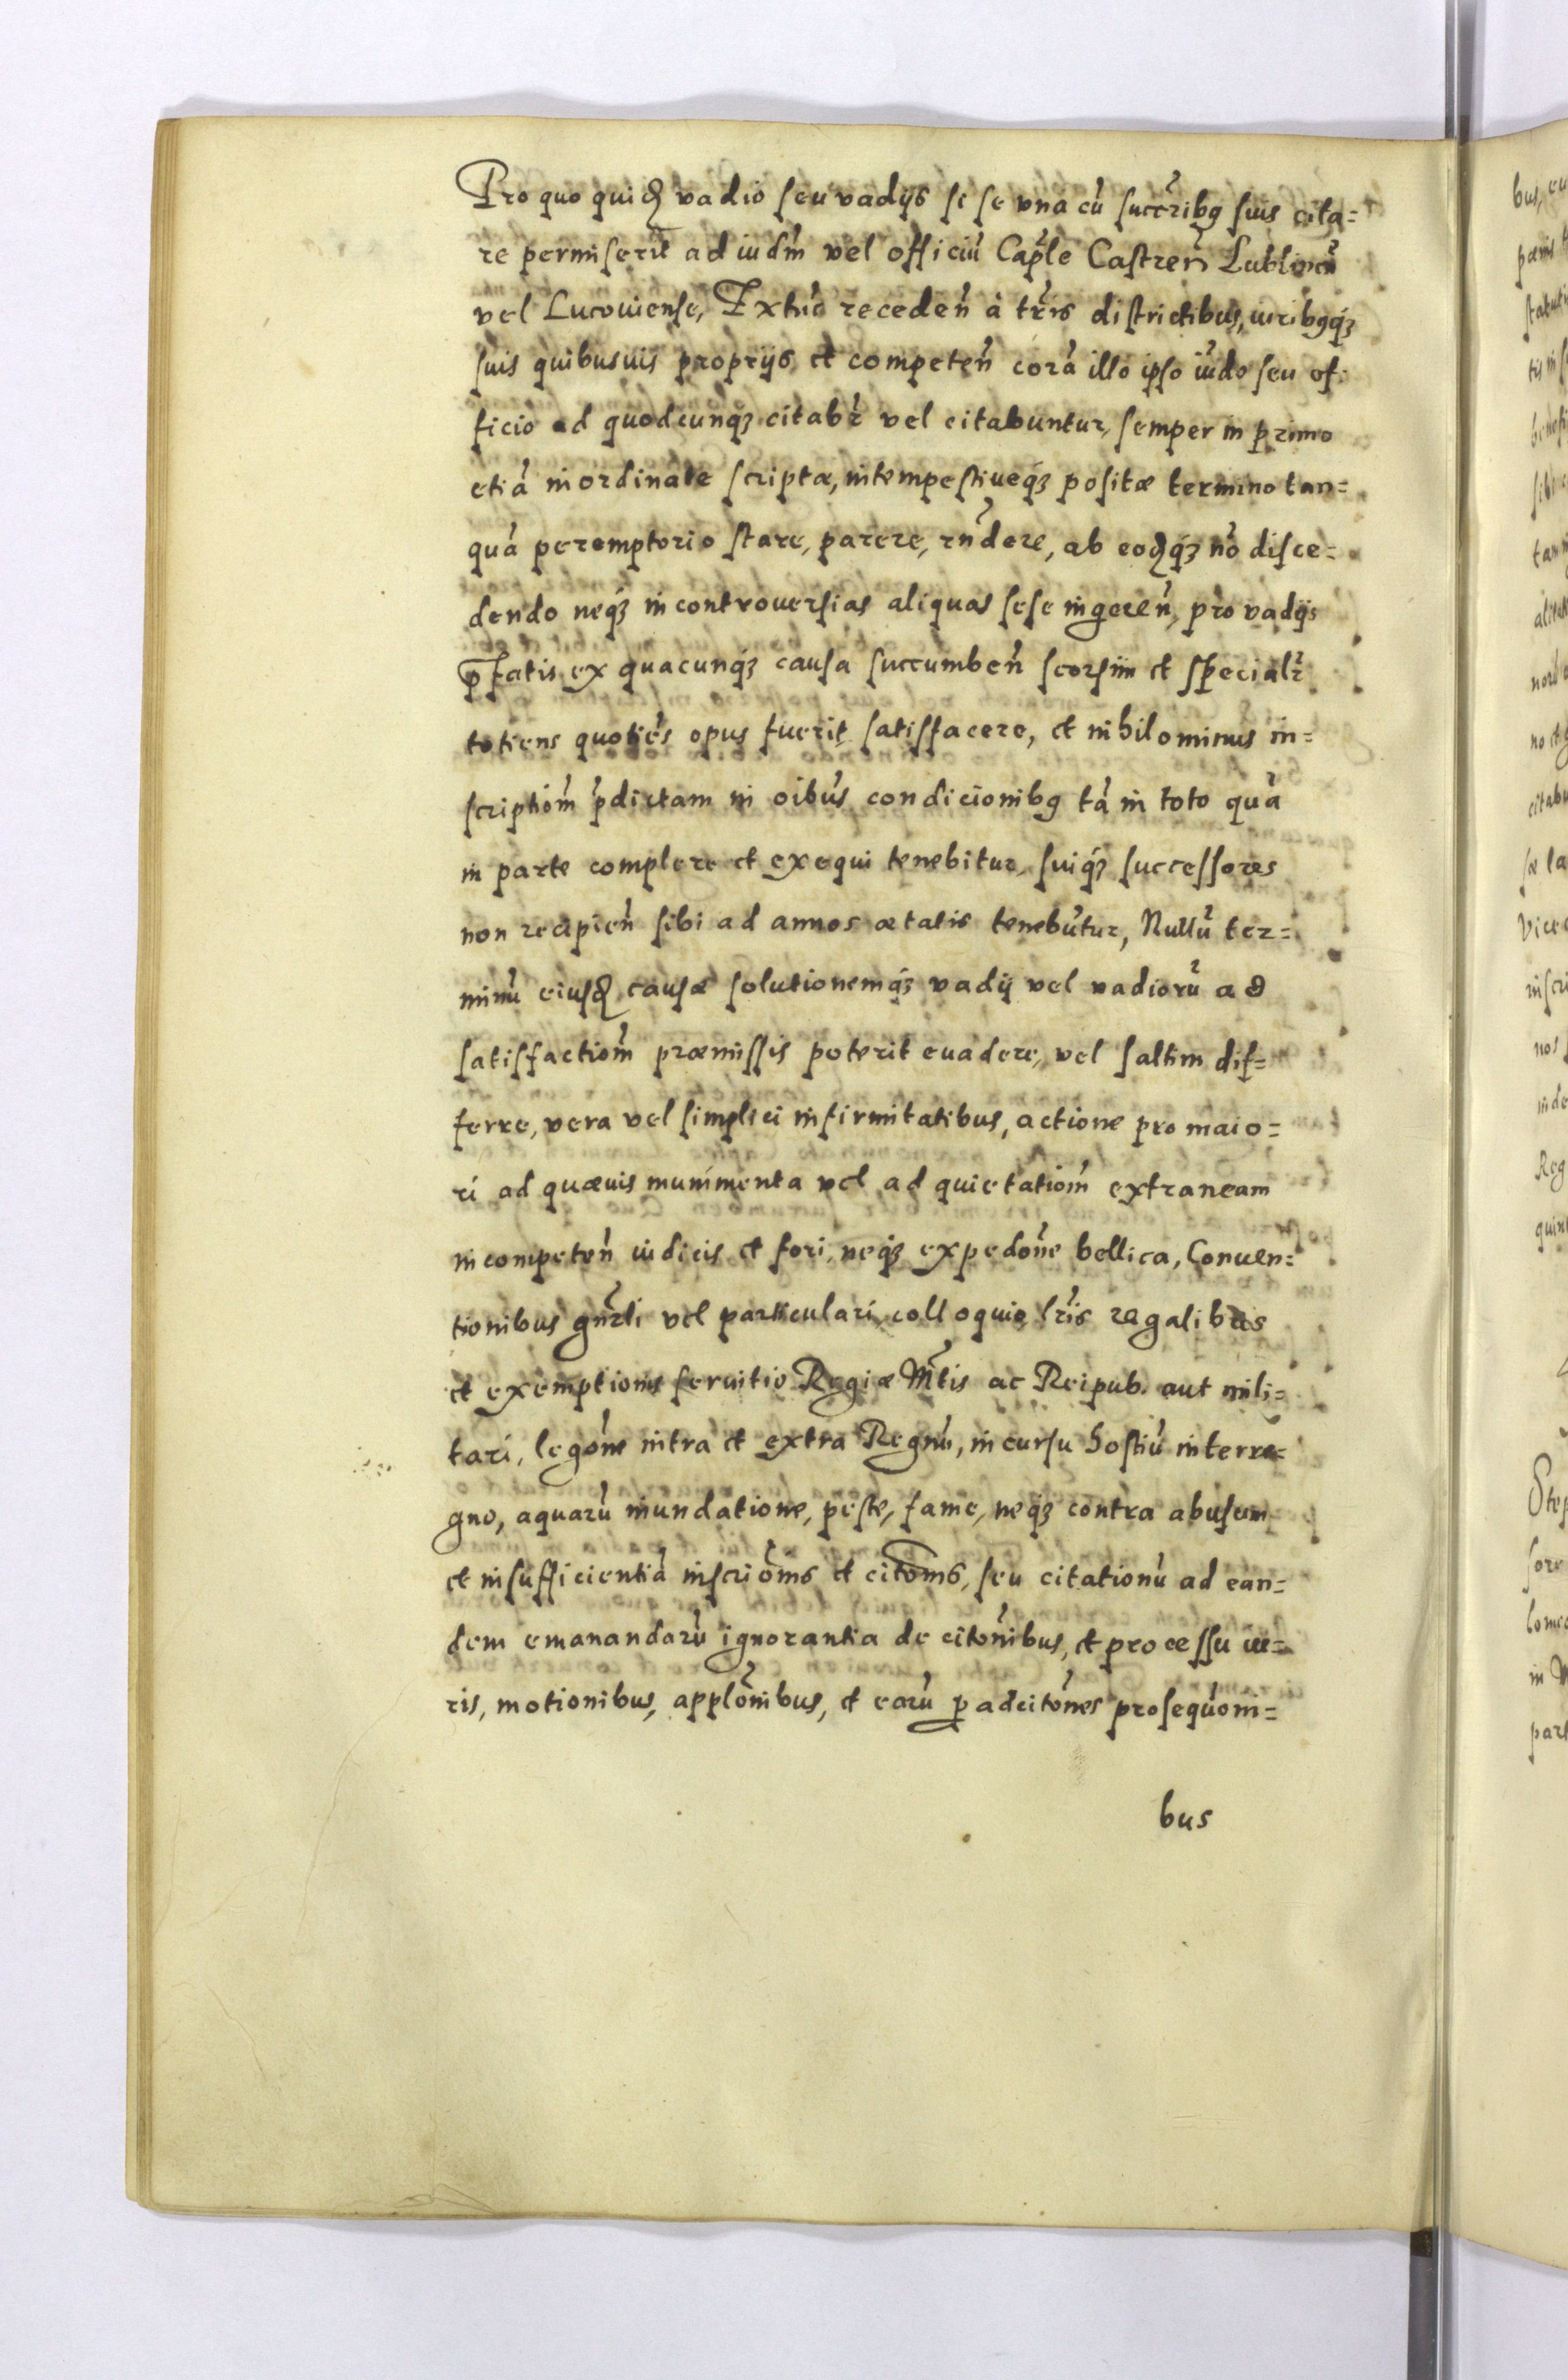 Pro quo quidẽ vadio seu vadijs si se vna cũ succribꝯ suis cita=
re permiserit ad iudm̃ vel officiũ Caple Castreñ Lublineñ
vel Lucouiense, Extũc recedeñ à tr̃is districtibus, iuribꝯqꝫ
suis quibusuis proprijs et competeñ corã illo ipso iũdo seu of=
ficio ad quodcunqꝫ citabr̃ vel citabuntur, semper in primo
etiã inordinate scriptæ, intempestiueqꝫ positæ termino tan=
quã peremptorio stare, parere, rñdere, ab eodẽqꝫ nõ disce=
dendo neqꝫ in controuersias aliquas sese ingereñ, pro vadijs
p̃fatis ex quacunqꝫ causa succumbeñ seorsim et specialr̃
totiens quotiẽs opus fuerit satisfacere, et nihilominus in=
scriptiom̃ p̃dictam in oĩbus condicionibꝯ tã in toto quã
in parte complere et exequi tenebitur, suiqꝫ successores
non recipieñ sibi ad annos ætatis tenebũtur, Nullũ ter=
minũ eiusdẽ causæ solutionemqꝫ vadij vel vadiorũ ad
satisfactiom̃ præmissis poterit euadere, vel saltim dif=
ferre, vera vel simplici infirmitatibus, actione pro maio=
ri ad quæuis munimenta vel ad quietatiom̃ extraneam
incompeteñ iudicis et fori, neqꝫ expedõne bellica, Conuen=
tionibus gñrli vel particulari, colloquio lr̃is regalibus
et exemptionis seruitio Regiæ Mtĩs ac Reipub. aut mili=
tari, legõne intra et extra Regnũ, incursu hostiũ interre=
gno, aquarũ inundatione, peste, fame, neqꝫ contra abusum
et insufficientiã inscriõnis et citõnis, seu citationũ ad ean=
dem emanandarũ ignorantia de citõnibus, et processu iu=
ris, motionibus, applõnibus, et earũ ꝑ adcitõnes prosequõni=
bus